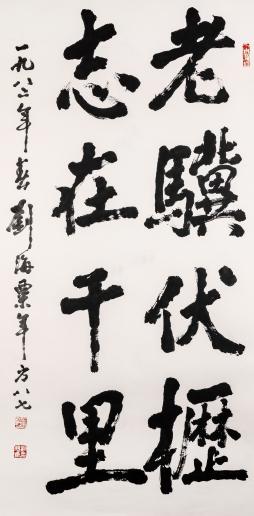 老驥伏櫪
志在千里
一九八二年春 劉海粟年方八七